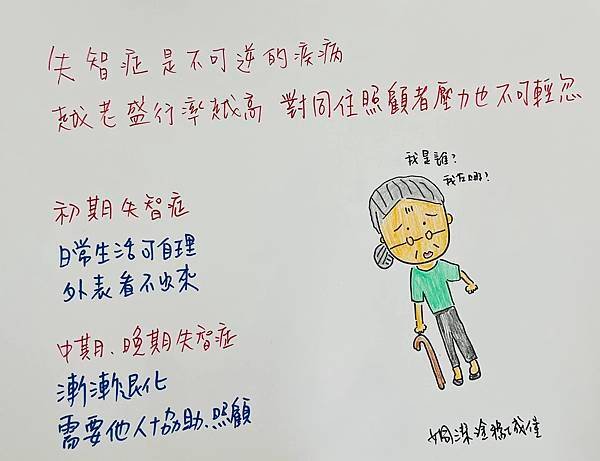 失智症是不可逆的疾病
越老盛行率越高 對同住照顧者壓力也不可輕忽
我是誰?
我在哪?
初期失智症
日常生活可自理
外表看不出來
中期、晚期失智症
漸漸退化
需要他人協助、照顧